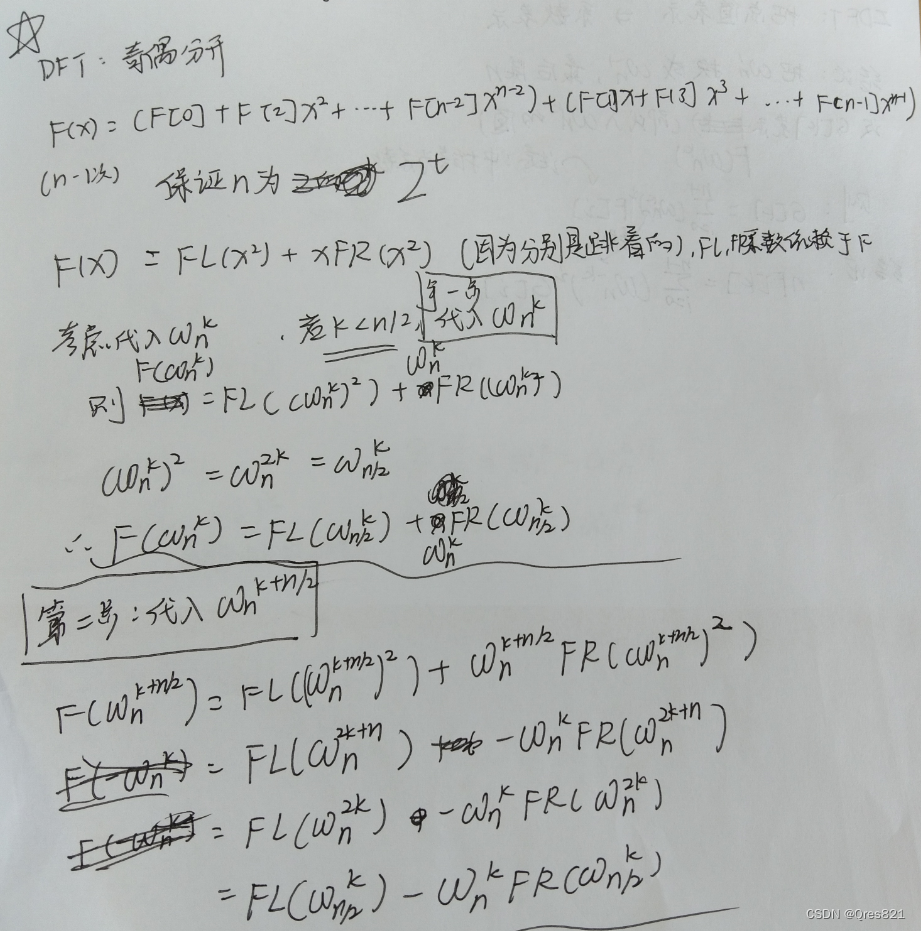 ☆
DFT: 奇偶分开
F(x) = (F[0] + F[2]x² + ⋯ + F[n-2]xⁿ⁻²) + (F[1]x + F[3]x³ + … + F[n-1]xⁿ⁻¹)
(n-1次) 保证n为 2^t
F(x) = FL(x²) + xFR(x²) (因为分别是跳着的), FL, FR系数依赖于F
考虑代入ω_n^k . 若k<n/2, 第一步 代入ω_n^k
则 F(ω_n^k) = FL((ω_n^k)²) + ω_n^k FR((ω_n^k)²)
(ω_n^k)² = ω_n^{2k} = ω_{n/2}^k
∴ F(ω_n^k) = FL(ω_{n/2}^k) + ω_n^k FR(ω_{n/2}^k)
第二步: 代入 ω_n^{k+n/2}
F(ω_n^{k+n/2}) = FL((ω_n^{k+n/2})²) + ω_n^{k+n/2} FR(ω_n^{k+n/2})²)
= FL(ω_n^{2k+n}) - ω_n^k FR(ω_n^{2k+n})
= FL(ω_n^{2k}) - ω_n^k FR(ω_n^{2k})
= FL(ω_{n/2}^k) - ω_n^k FR(ω_{n/2}^k)
CSDN @Qres821